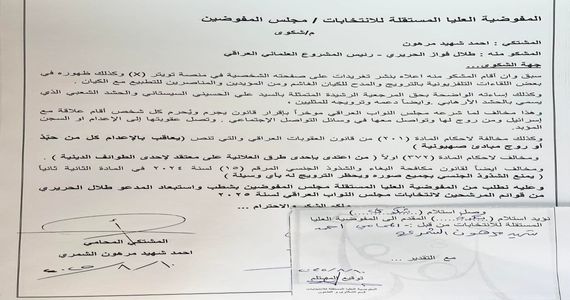 المفوضية العليا المستقلة للانتخابات / مجلس المفوضين
م/شكوى
المشتكي : احمد شهيد مرهون
المشكو منه : طلال فواز الحريري - رئيس المشروع العلماني العراقي
جهة الشكوى...
سبق وان أقام المشكو منه اعلاه بنشر تغريدات على صفحته الشخصية في منصة تويتر (X) وكذلك ظهوره في
بعض اللقاءات التلفزيونية بالترويج والمدح للكيان الغاصب ومن المؤيدين والمناصرين للتطبيع مع الكيان .
وكذلك إساءته الواضحة بحق المرجعية الرشيدة المتمثلة بالسيد علي الحسيني السيستاني والحشد الشعبي الذي
يسمي بالحشد الأرهابي .وايضاً دعمه وترويجه للمثليين .
وهذا مخالف لما شرعه مجلس النواب العراقي مؤخراً بإقرار قانون يجرم ويُحرم كل شخص أقام علاقة مع
إسرائيل ومن روج لها وتواصل معها في وسائل التواصل الاجتماعي . وتصل عقوبتها إلى الإعدام او السجن
المؤبد.
وكذلك مخالفة لاحكام المادة (٢٠١) من قانون العقوبات العراقي والتي تنص (يعاقب بالإعدام كل من حبّذ
أو روج مبادئ صهيونية )
ومخالف لاحكام المادة (٣٧٢) اولاً ( من اعتدى بإحدى طرق العلانية على معتقد لاحدى الطوائف الدينية ) .
ومخالف ايضاً لقانون مكافحة البغاء والشذوذ الجنسي المرقم (١٥) لسنة ٢٠٢٤ في المادة الثانية ثانياً
( يمنع الشذوذ الجنسي بجميع صوره ويحظر الترويج له بأي وسيلة )
وعليه نطلب من المفوضية العليا المستقلة مجلس المفوضين بشطب واستبعاد المدعو طلال الحريري
من قوائم المرشحين لانتخابات مجلس النواب العراقي لسنة ٢٠٢٥
ولكم الشكر والاحترام ...
المشتكي المحامي
احمد شهيد مرهون الشمري
٢٠٢٥/٨/١٠
وصل استلام
نؤيد استلام (شكوى) المقدم الى المفوضية العليا
المستقلة للانتخابات من قبل :- المحامي احمد
شهيد مرهون الشمري
مع التقدير ...
٢٠٢٥/٨/١٠
توقيع المستلم